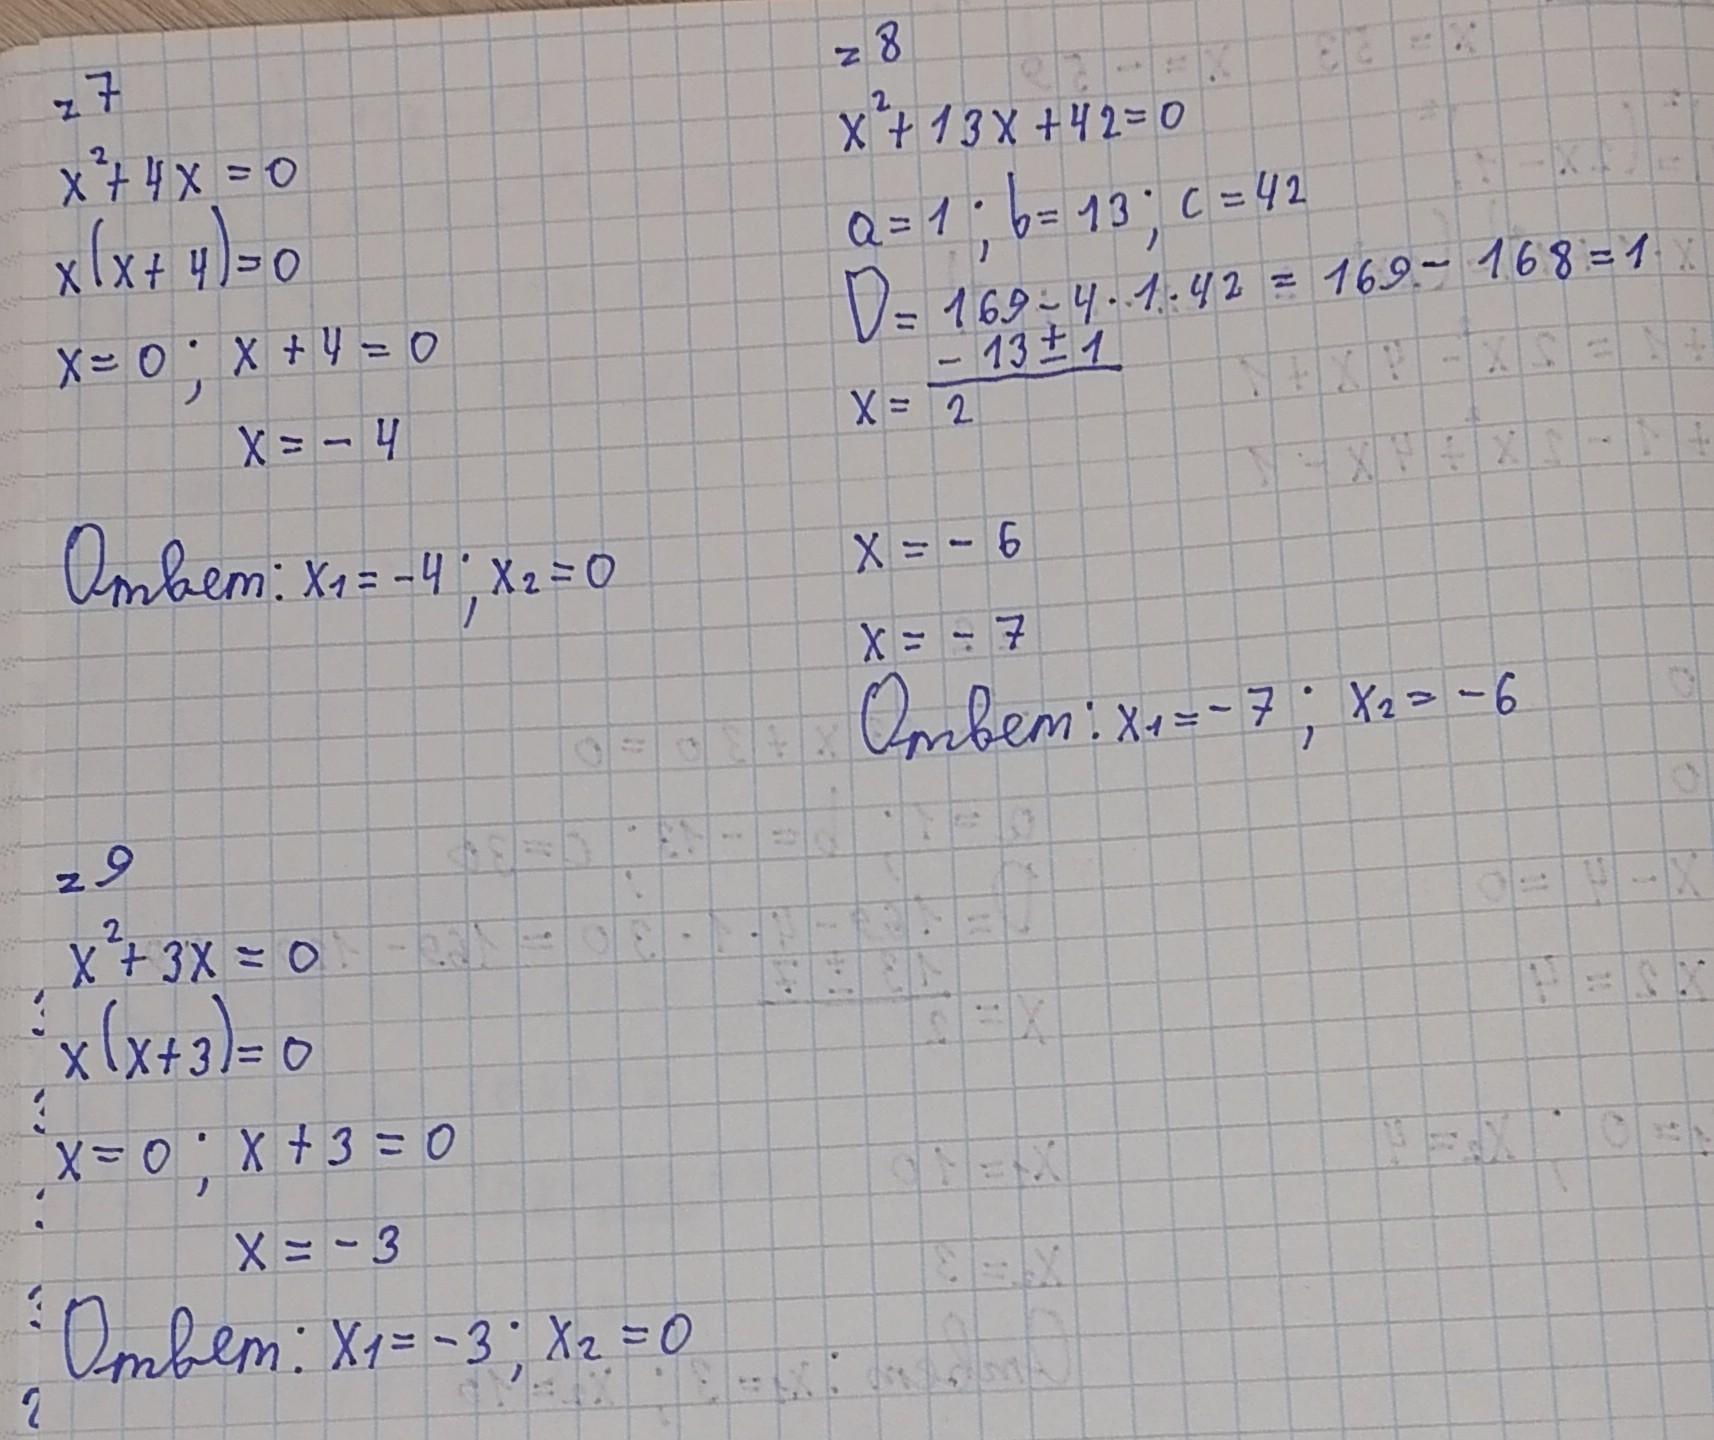 z 7
x² + 4x = 0
x(x + 4) = 0
x = 0 ; x + 4 = 0
x = - 4
Ответ: x₁ = -4 ; x₂ = 0
z 8
x² + 13x + 42 = 0
a = 1 ; b = 13 ; c = 42
D = 169 - 4 · 1 · 42 = 169 - 168 = 1
- 13 ± 1
x = 2
x = - 6
x = - 7
Ответ: x₁ = - 7 ; x₂ = - 6
z 9
x² + 3x = 0
x(x + 3) = 0
x = 0 ; x + 3 = 0
x = - 3
Ответ: x₁ = - 3 ; x₂ = 0